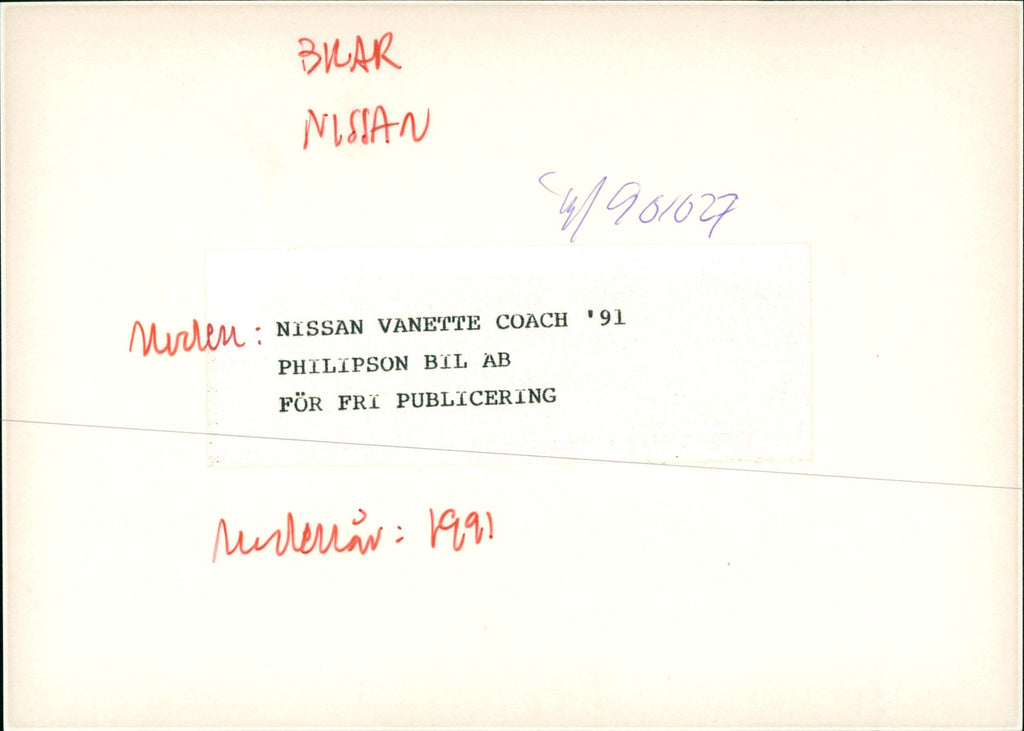 BILAR
NISSAN
901027
Modell: NISSAN VANETTE COACH '91
PHILIPSON BIL AB
FÖR FRI PUBLICERING
Modellår: 1991